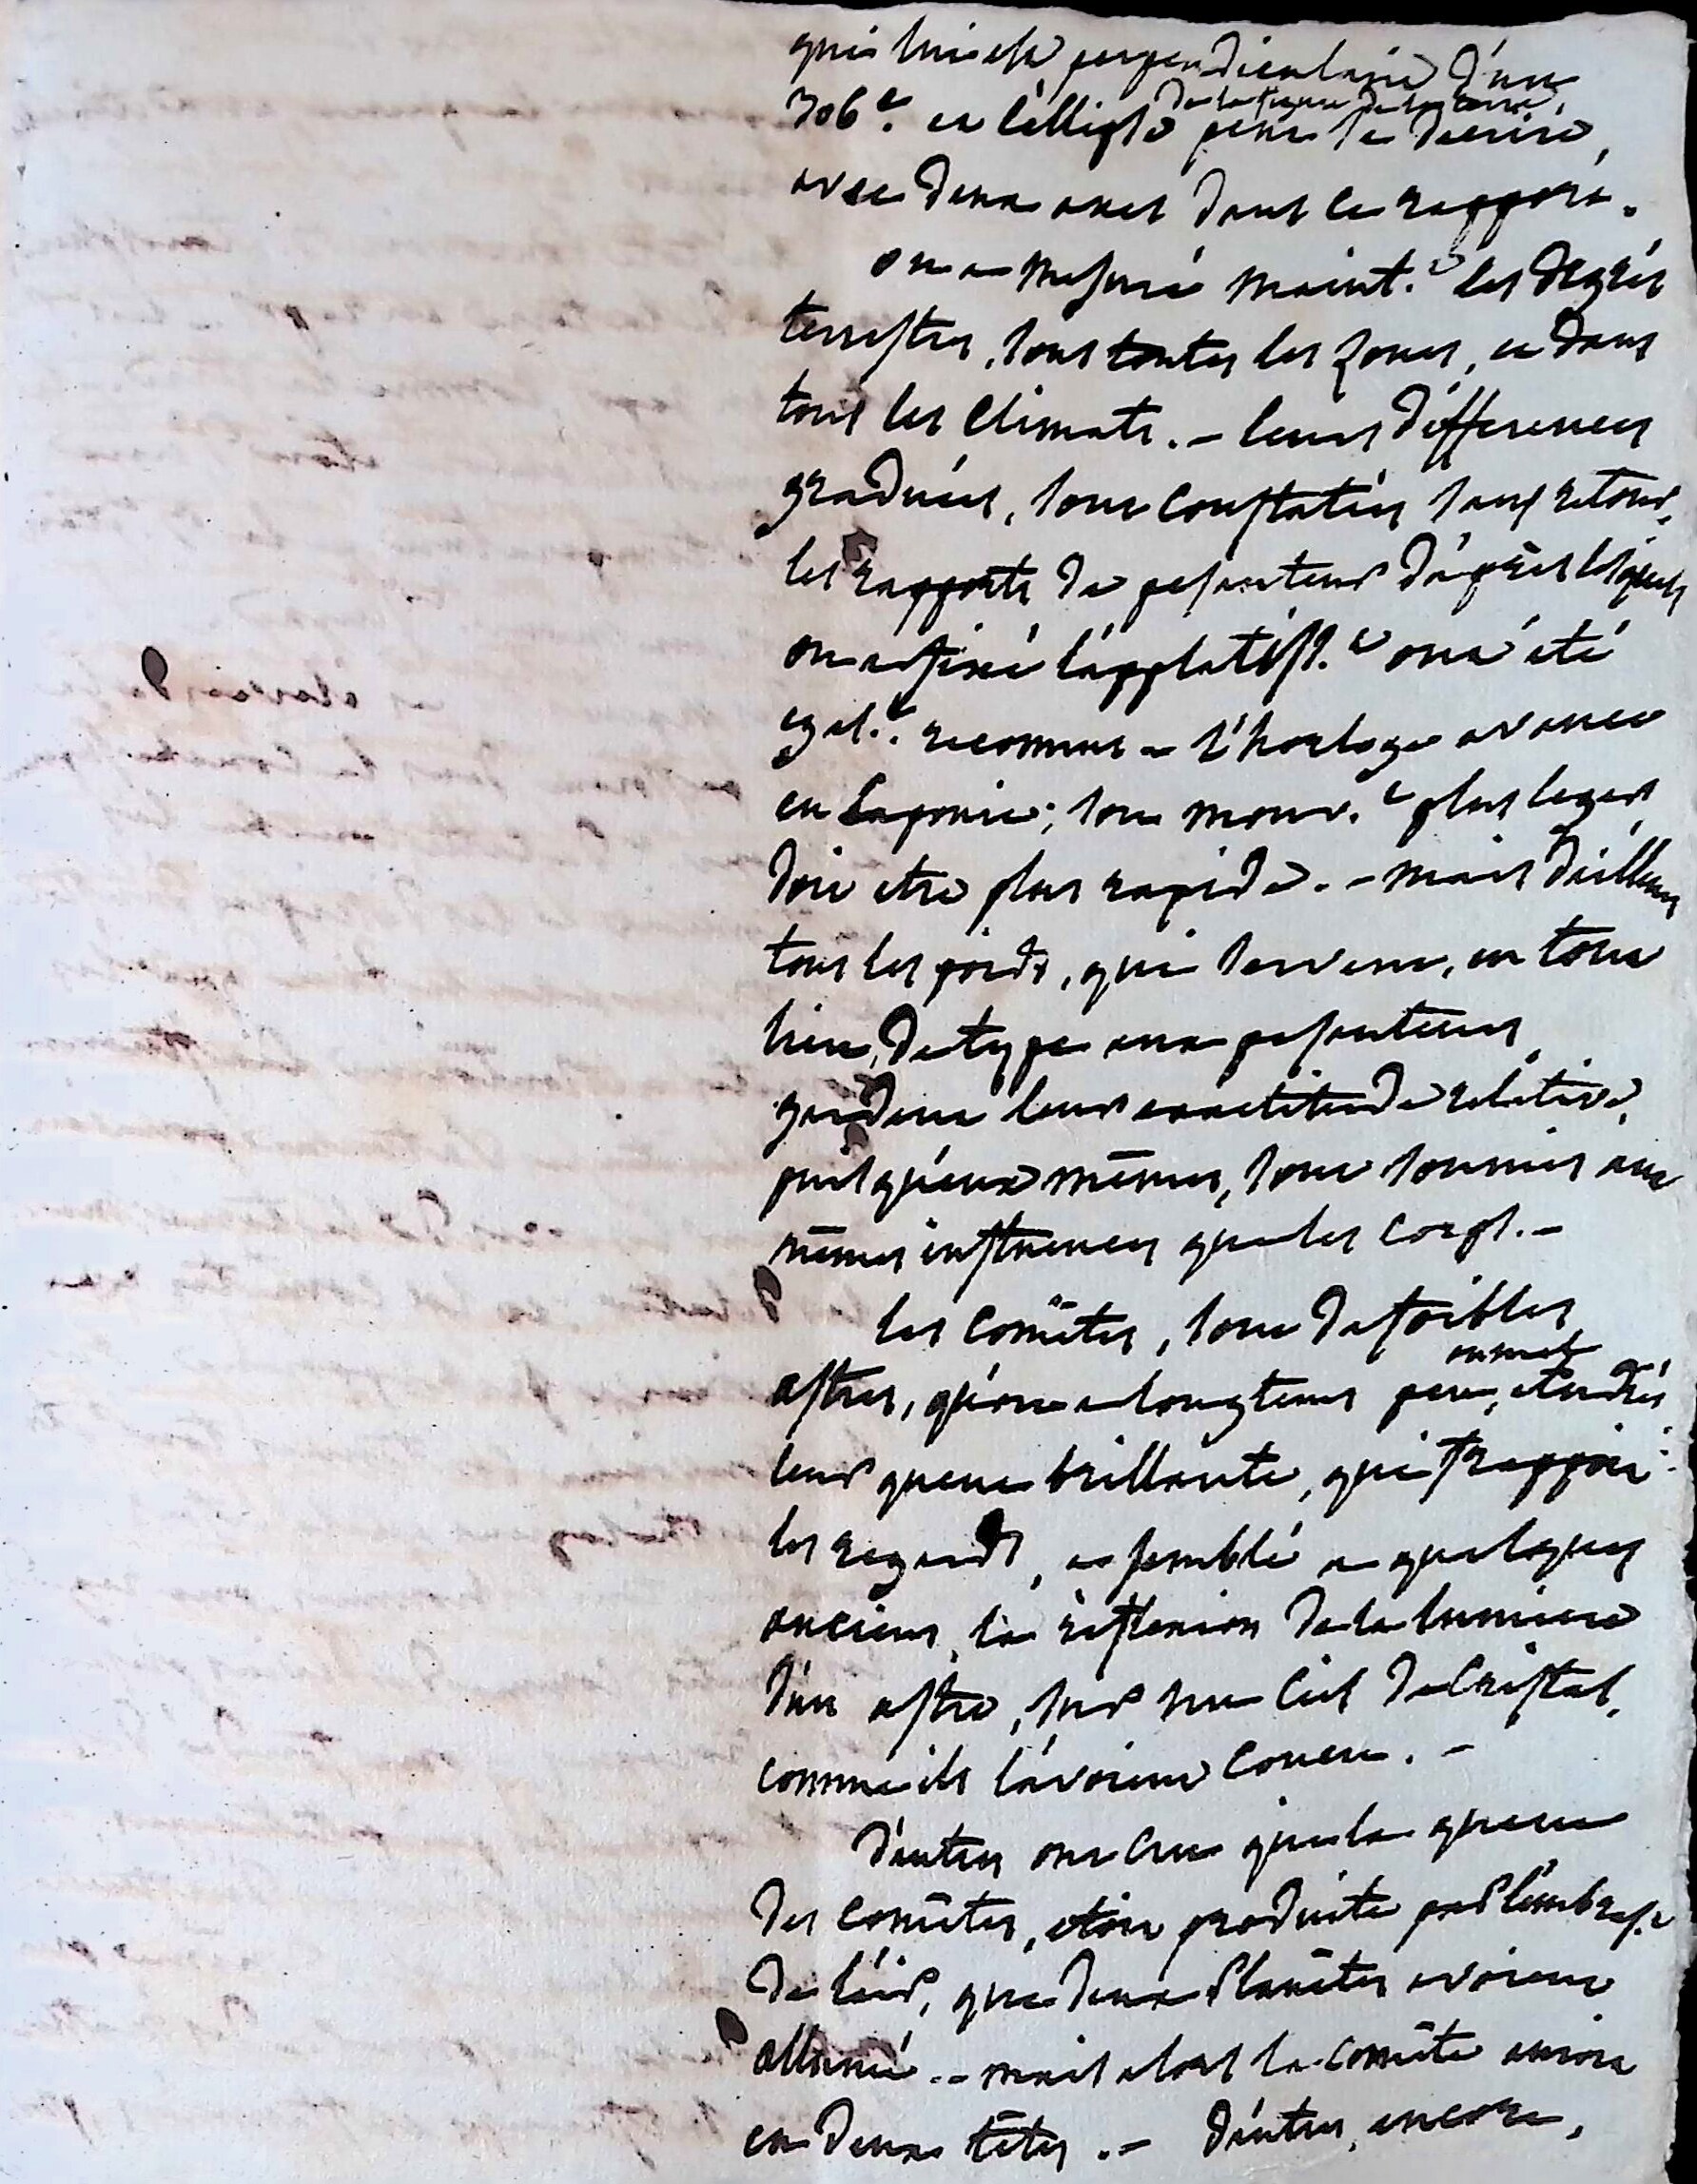 qui lui est perpendiculaire d'un
306.e et l'ellipse de la figure de la terre, peut se décrire,
avec deux axes dans ce rapport.
on a mesuré maint.t les degrés
terrestres, sous toutes les zones, et dans
tous les climats. - leurs différences
graduées, sont constatées sans retour.
les rapports de pesanteur d'après lesquels
on a fixé l'applatiss.t ont été
egal.t reconnus - l'horloge avance
en Laponie; son mouv.t plus leger,
doit etre plus rapide. - mais d'ailleurs
tous les poids, qui servent, en tout
lieu, de type aux pesanteurs,
gardent leur exactitude relative,
puisqu'eux mêmes, sont soumis aux
mêmes influences que les corps. -
les comêtes, sont de foibles
astres, qu'on a longtems peu connus, et
leur queue brillante, qui frappoit
les regards, a semblé a quelques
anciens, la réflexion de la lumiere
d'un astre, sur un ciel de cristal,
comme ils l'avoient conçu. -
d'autres ont cru que la queue
des comêtes, etoit produite par l'embras.t
de l'air, que deux planêtes avoient
allumé. - mais alors la comête auroit
eu deux têtes. - d'autres, encore,